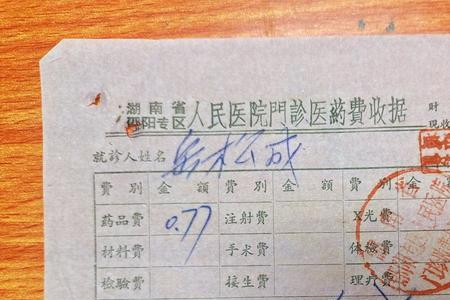 湖南省
邵阳专区 人民医院門診医葯費收据 财
现收
就診人姓名 岳松成
費別 金額 費別 金額 費別
药品費 0.77 注射費 X光費
材料費 手术費 体檢費
检驗費 接生費 理疗費